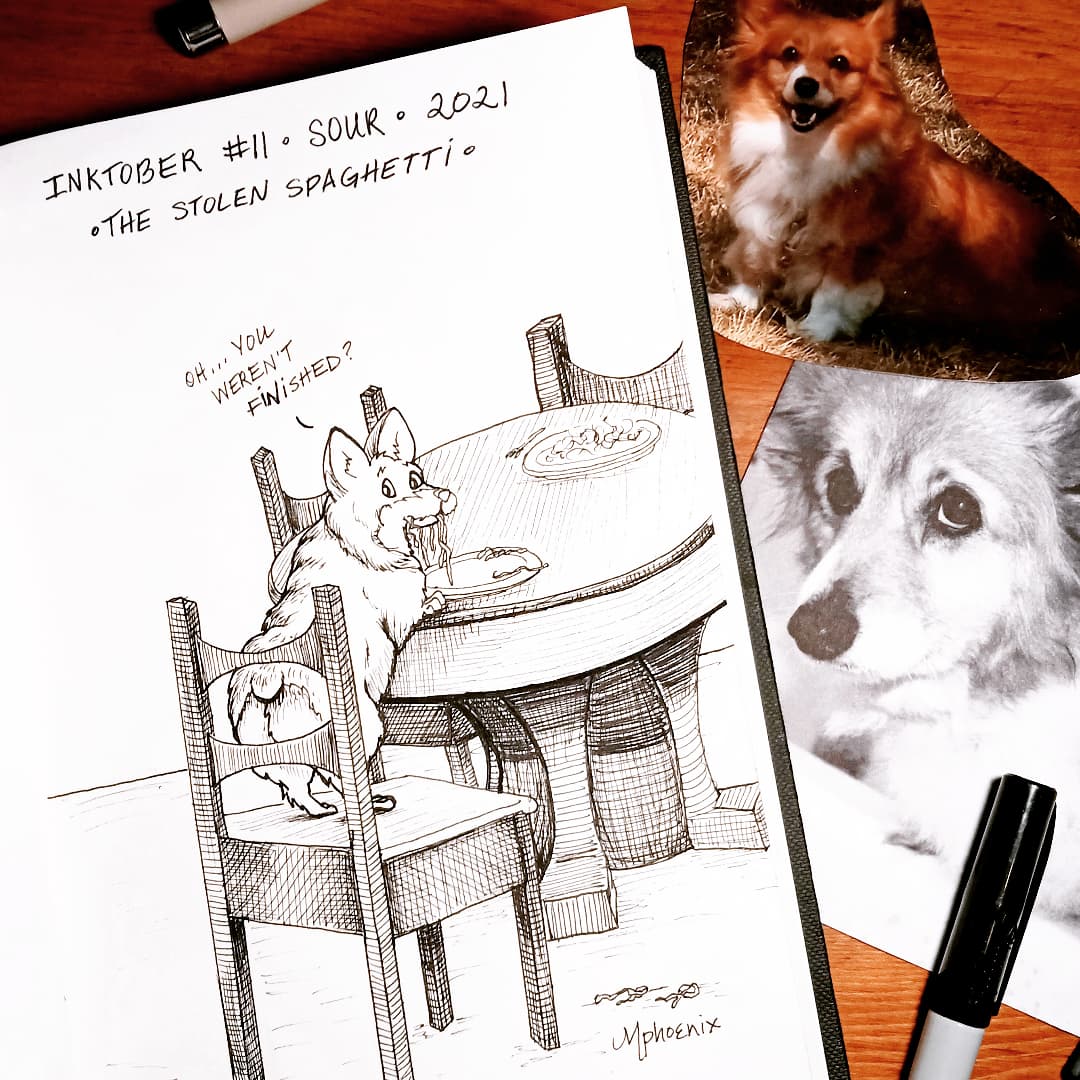 INKTOBER #11 • SOUR • 2021
• THE STOLEN SPAGHETTI •
OH... YOU
WEREN'T
FINISHED?
Mphoenix